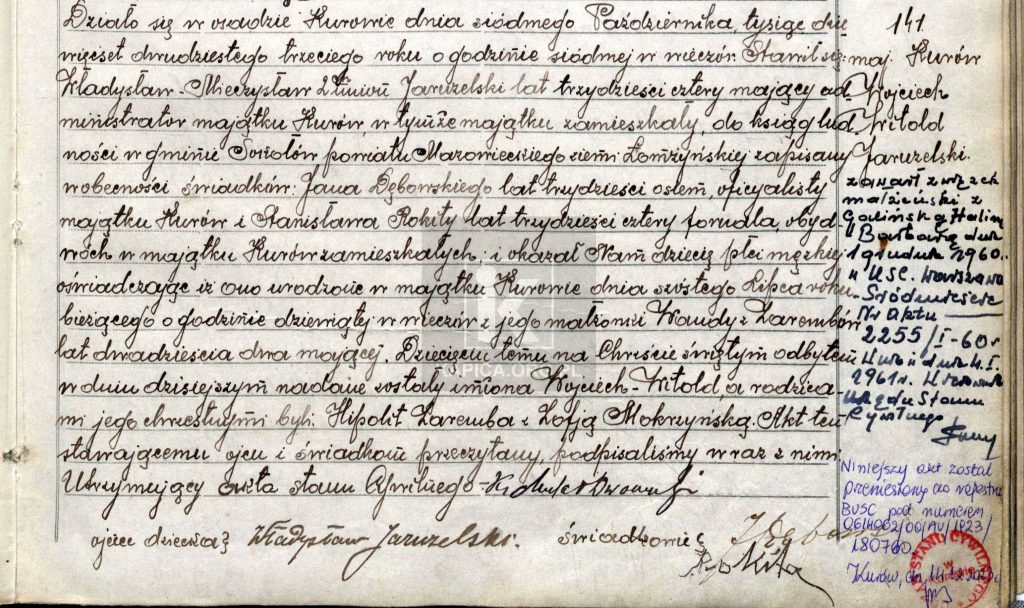 Działo się w osadzie Kurowie dnia siódmego Października, tysiąc dzie
więćset dwudziestego trzeciego roku o godzinie siódmej w wieczór. Stawił się
Władysław-Mieczysław 2 imion Jaruzelski lat trzydzieści cztery mający ad-
ministrator majątku Kurów, w tymże majątku zamieszkały, do ksiąg lud
ności w gminie Sokołów powiatu Mazowieckiego ziemi Łomżyńskiej zapisany
w obecności świadków: Jana Dębowskiego lat trzydzieści osiem, oficyalisty
majątku Kurów i Stanisława Rokity lat trzydzieści cztery fornala, obyd-
wóch w majątku Kurów zamieszkałych; i okazał Nam dziecię płci męzkiej
oświadczając iż ono urodzone w majątku Kurowie dnia szóstego Lipca roku
bieżącego o godzinie dziewiątej w wieczór z jego małżonki Wandy z Zarembów
lat dwadzieścia dwa mającej. Dziecięciu temu na Chrzcie świętym odbytem
w dniu dzisiejszym nadane zostały imiona Wojciech-Witold, a rodzica-
mi jego chrzestnymi byli: Hipolit Zaremba z Zofją Mokrzyńską. Akt ten
stawającemu ojcu i świadkom przeczytany, podpisaliśmy wraz z nimi
Utrzymujący akta stanu Cywilnego-
ojciec dziecka} Władysław Jaruzelski. świadkowie { J Dębowski
Rokita
141
maj. Kurów
Wojciech
Witold
Jaruzelski.
zawarł związek
małżeński z
Golińską Haliną
Barbarą dnia
1 grudnia 1960.
w USC. Warszawa
Śródmieście
Nr aktu
2255/I-60 r
Kurów dnia 4.I.
1961r. Kierownik
Urzędu Stanu
Cywilnego
Niniejszy akt został
przeniesiony do rejestru
BUSC pod numerem
0614062/00/AU/1923/
180760
Kurów, dn.
STANU CYWILNEGO
KAPICA.ORG.PL